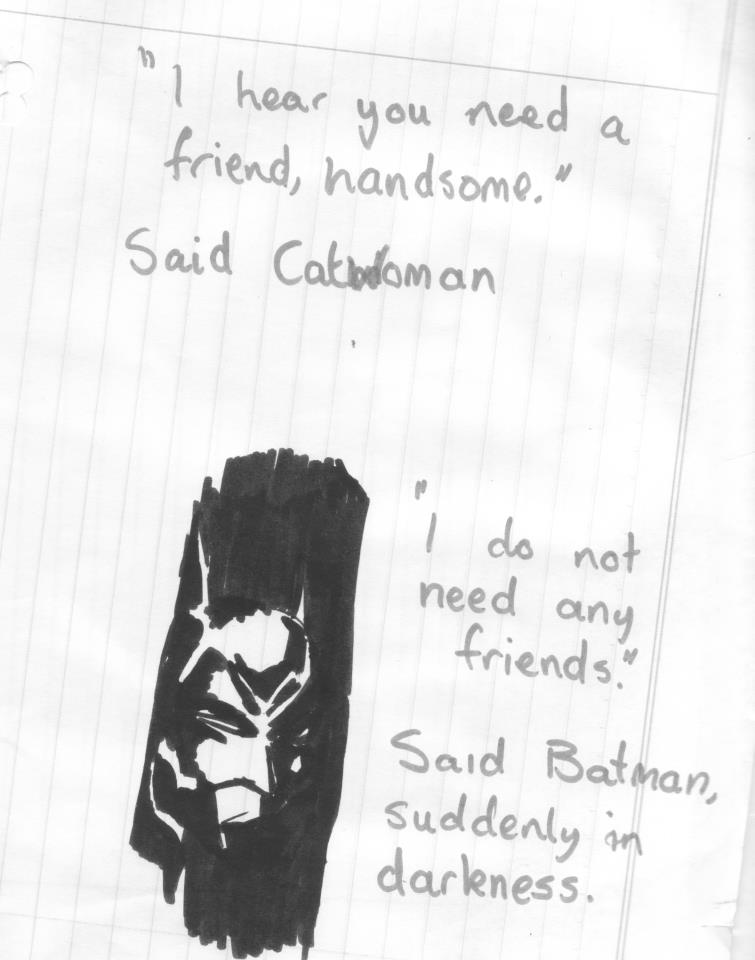 "I hear you need a
friend, handsome."
Said Catwoman
"I do not
need any
friends."
Said Batman,
suddenly in
darkness.